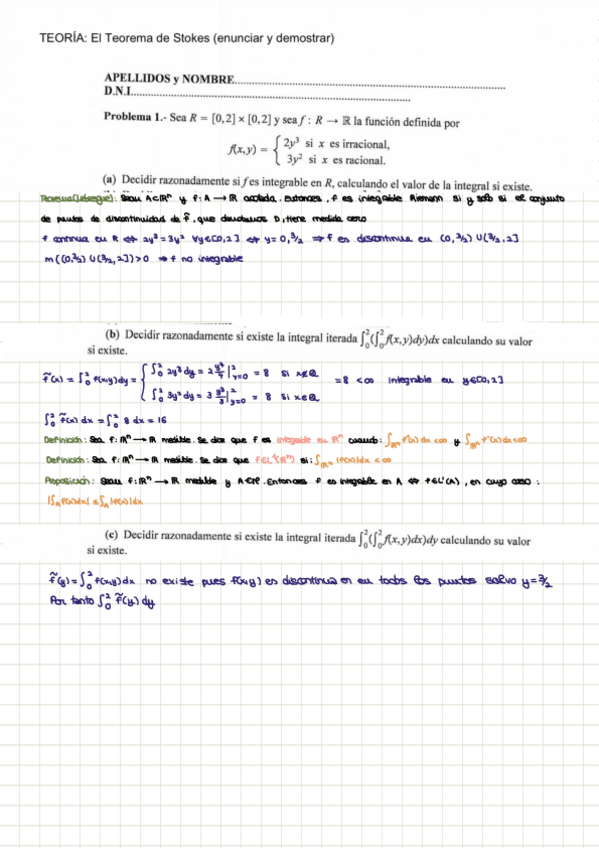 TEORÍA: El Teorema de Stokes (enunciar y demostrar)
APELLIDOS y NOMBRE
D.N.I.
Problema 1.- Sea R = [0,2] × [0,2] y sea f : R → ℝ la función definida por
f(x,y) = { 2y³ si x es irracional,
3y² si x es racional.
(a) Decidir razonadamente si f es integrable en R, calculando el valor de la integral si existe.
Teorema (Lebesgue): Sean A⊂ℝⁿ y f: A → ℝ acotada. Entonces, f es integrable Riemann si y solo si el conjunto
de puntos de discontinuidad de f̃, que denotamos D, tiene medida cero
f continua en R ⇔ 2y³ = 3y² ∀y∈[0,2] ⇔ y = 0, 3/2 ⇒ f es discontinua en (0, 3/2) ∪ (3/2, 2]
m((0, 3/2) ∪ (3/2, 2]) > 0 ⇒ f no integrable
(b) Decidir razonadamente si existe la integral iterada ∫₀²(∫₀² f(x,y)dy)dx calculando su valor
si existe.
f̃(x) = ∫₀² f(x,y) dy = { ∫₀² 2y³ dy = 2 y⁴/4 |²y=0 = 8 si x∉ℚ
∫₀² 3y² dy = 3 y³/3 |²y=0 = 8 si x∈ℚ
= 8 < ∞ integrable en y∈[0,2]
∫₀² f̃(x) dx = ∫₀² 8 dx = 16
Definición: Sea f: ℝⁿ → ℝ medible. Se dice que f es integrable en ℝⁿ cuando: ∫ℝⁿ f⁺(x) dx < ∞ y ∫ℝⁿ f⁻(x) dx < ∞
Definición: Sea f: ℝⁿ → ℝ medible. Se dice que f∈L¹(ℝⁿ) si: ∫ℝⁿ |f(x)| dx < ∞
Proposición: Sean f: ℝⁿ → ℝ medible y A∈ . Entonces f es integrable en A ⇔ f∈L¹(A), en cuyo caso:
|∫A f(x)dx| ≤ ∫A |f(x)| dx
(c) Decidir razonadamente si existe la integral iterada ∫₀²(∫₀² f(x,y)dx)dy calculando su valor
si existe.
f̃(y) = ∫₀² f(x,y) dx no existe pues f(x,y) es discontinua en en todos los puntos salvo y = 3/2
Por tanto ∫₀² f̃(y) dy